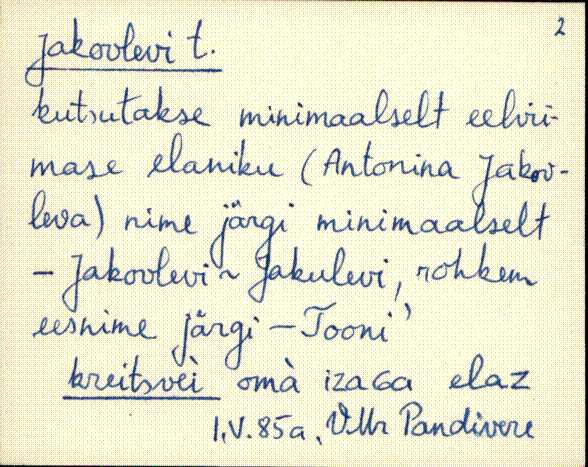 2
Jakovlevi t.
kutsutakse minimaalselt eelvii-
mase elaniku (Antonina Jakov-
leva) nime järgi minimaalselt
– Jakovlevi ~ Jakulevi, rohkem
eesnime järgi – Tooni’
kreitsvèi omà iza6a elaz
1.V.85a. VMr Pandivere